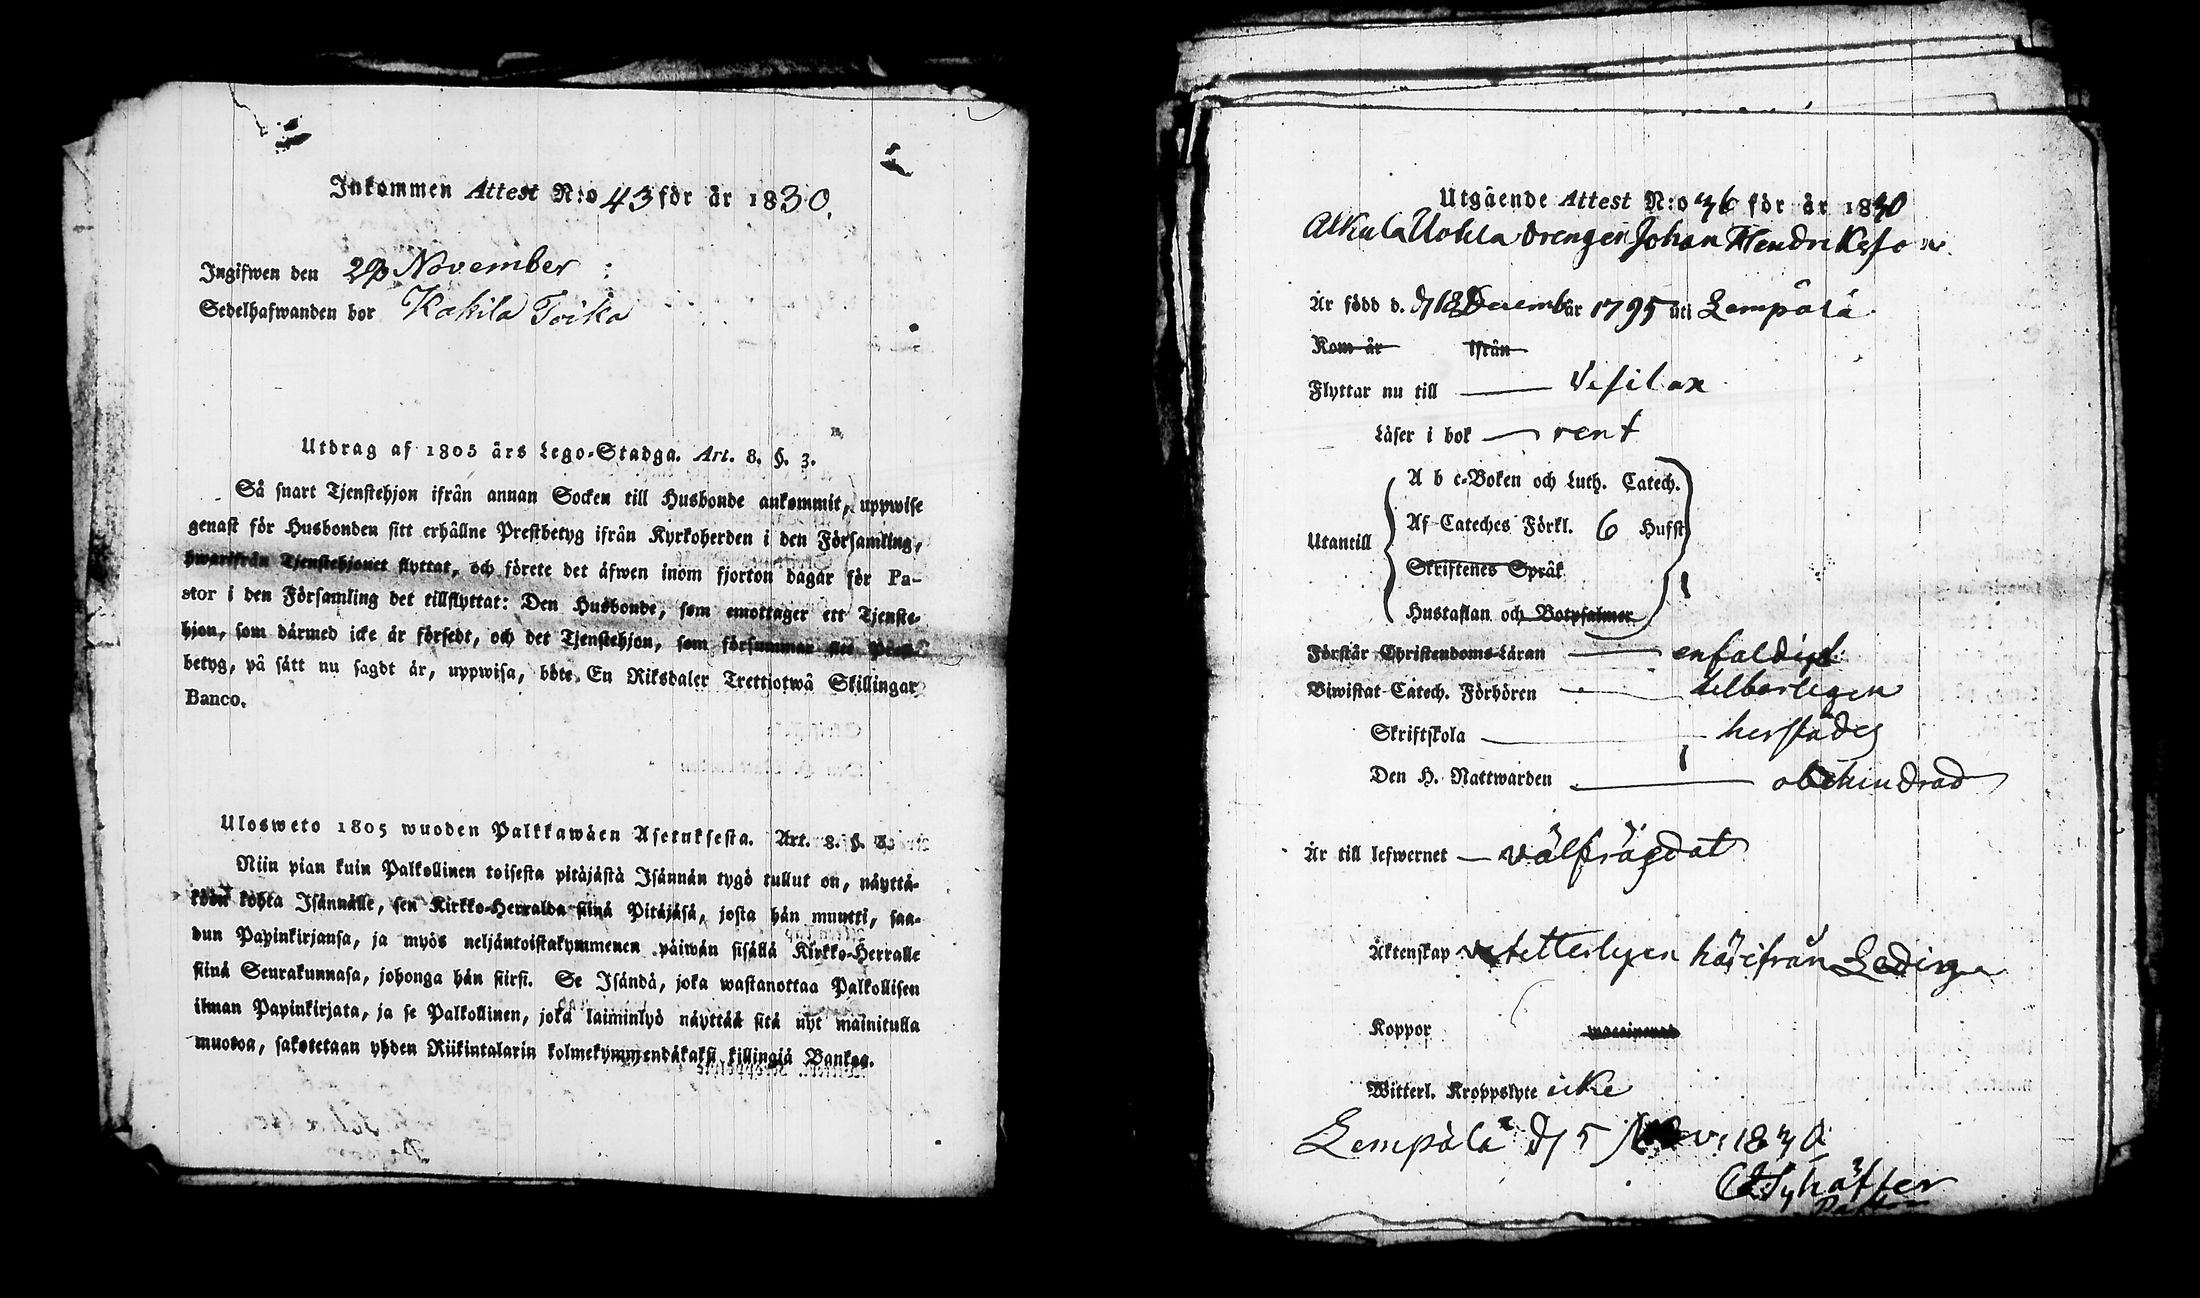 Inkommen Attest N:o 43 för år 1830.
Ingifwen den 29 November
Sedelhafwanden bor Kakila Toika
Utdrag af 1805 års Lego-Stadga. Art. 8. §. 3.
Så snart Tjenstehjon ifrån annan Socken till Husbonde ankommit, uppwise
genast för Husbonden sitt erhållne Prestbetyg ifrån Kyrkoherden i den Församling,
hwarifrån Tjenstehjonet flyttat, och förete det äfwen inom fjorton dagar för Pa-
stor i den Församling det tillflyttat: Den Husbonde, som emottager ett Tjenste-
hjon, som därmed icke är försedt, och det Tjenstehjon, som försummar sitt Prest-
betyg, på sätt nu sagdt är, uppwisa, böte En Riksdaler Trettiotwå Skillingar
Banco.
Ulosweto 1805 wuoden Palkkawäen Asetuksesta. Art. 8. §. 3.
Niin pian kuin Palkollinen toisesta pitäjästä Isännän tygö tullut on, näyttä-
köön kohta Isännälle, sen Kirkko-Herralda siinä Pitäjäsä, josta hän muutti, saa-
dun Papinkirjansa, ja myös neljäntoistakymmenen päiwän sisällä Kirkko-Herralle
siinä Seurakunnasa, johonga hän siirsi. Se Isändä, joka wastanottaa Palkollisen
ilman Papinkirjata, ja se Palkollinen, joka laiminlyö näyttää sitä nyt mainitulla
muotoa, sakotetaan yhden Riikintalarin kolmekymmendäkaksi killingiä Bankoa.
Utgående Attest N:o 36 för år 1830
Alkula Uotila drengen Johan Hendriksson
Är född d. 18 Decemb år 1795 uti Lempälä
Kom år ifrån
Flyttar nu till Vesilax
Läser i bok rent
A b c-Boken och Luth. Catech.
Af Cateches Förkl. 6 Hufst
Utantill
Skriftenes Språk
Hustaflan och Botpsalmer
Förstår Christendoms-Läran enfaldigt
Biwistat Catech. Förhören tilbörligen
Skriftskola herstädes
Den H. Nattwarden obehindrad
Är till lefwernet välfrägdat
Äktenskap härifrån Ledig
Koppor
Witterl. Kroppslyte icke
Lempälä d 5 Nov: 1830
Pastor